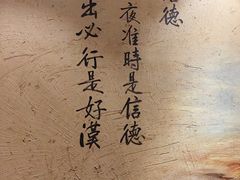 信德
夜准時是信德
出必行是好漢